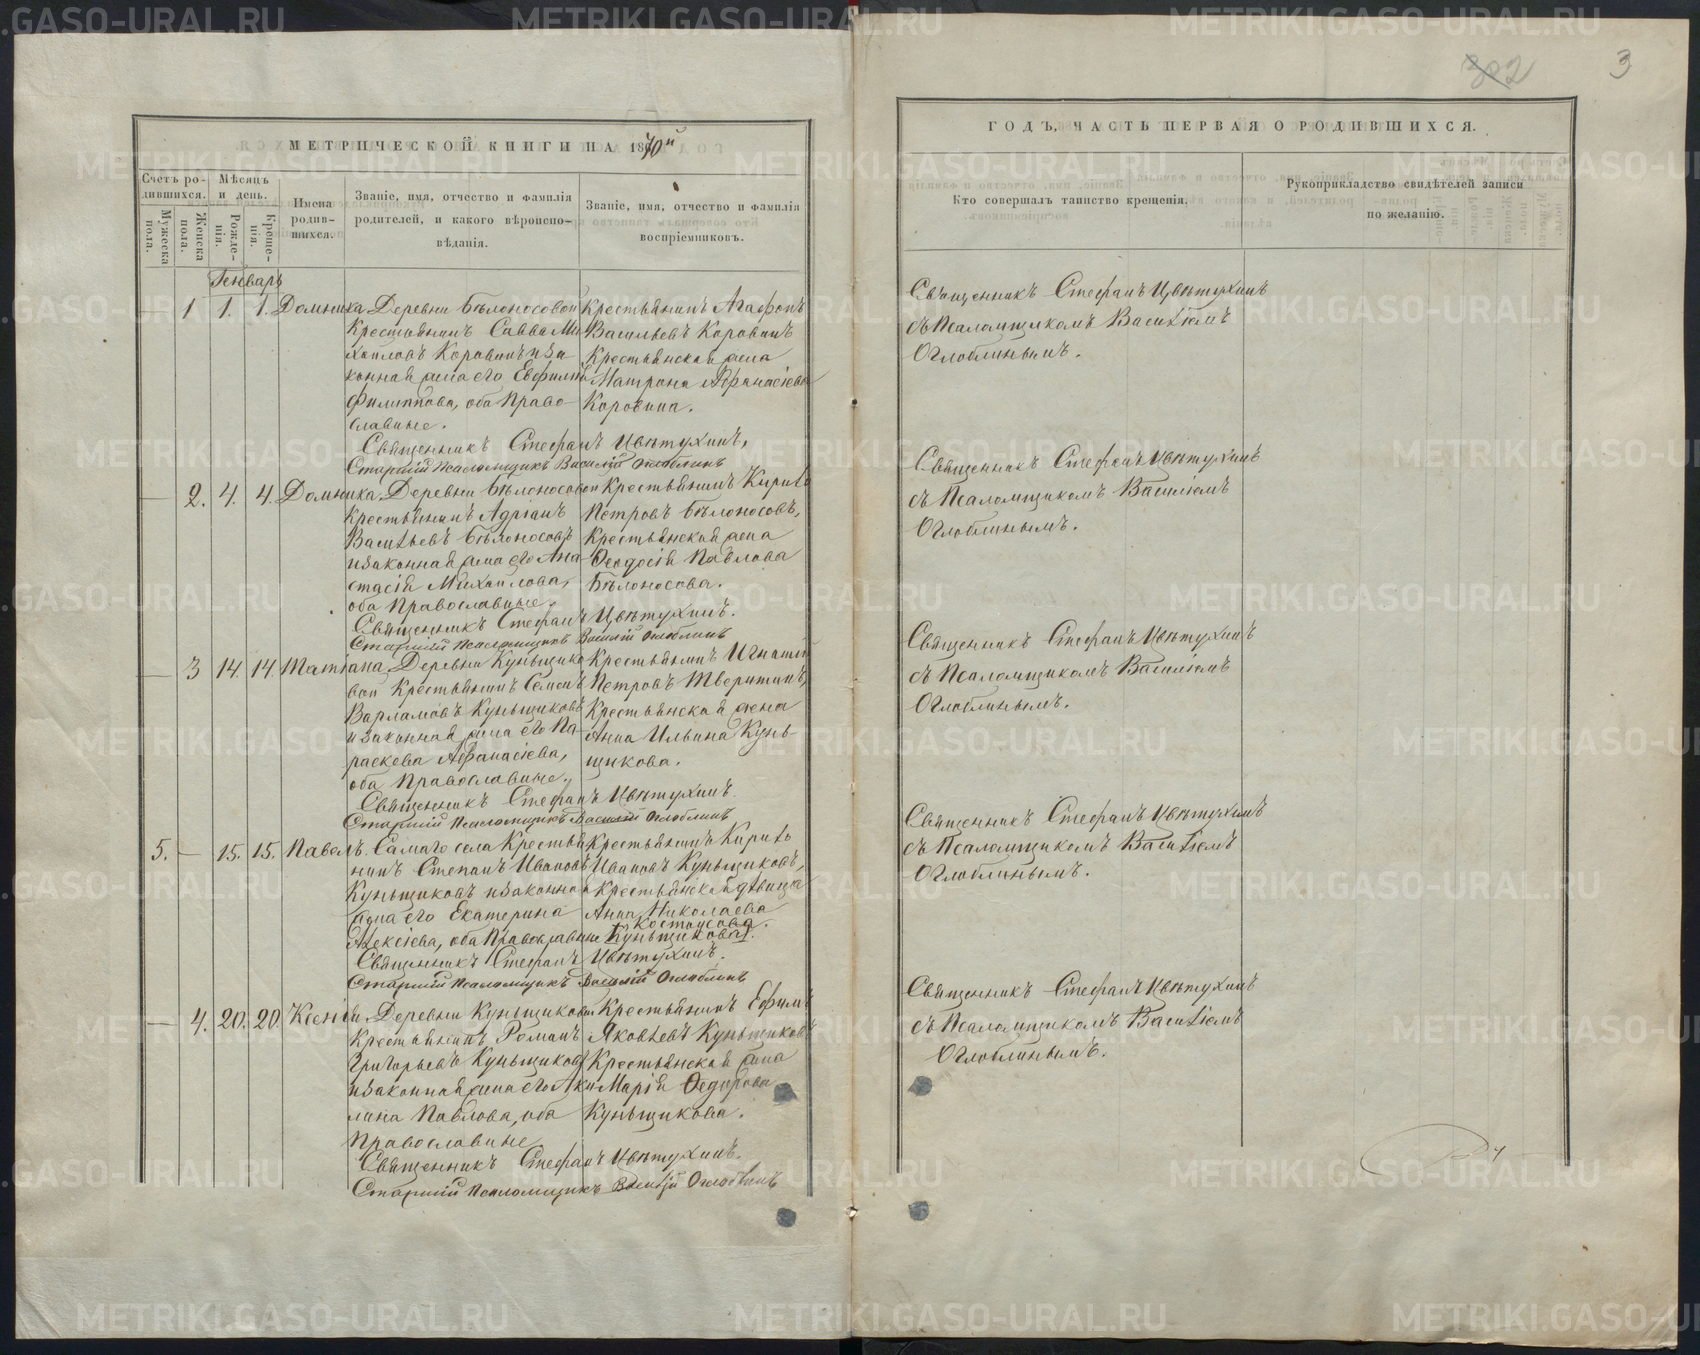 302 3
МЕТРИЧЕСКОЙ КНИГИ НА 1870й
Счетъ родившихся.
Мѣсяцъ и день.
Мужеска пола.
Женска пола.
Рожденія.
Крещенія.
Имена родившихся.
Званіе, имя, отчество и фамилія родителей, и какого вѣроисповѣданія.
Званіе, имя, отчество и фамилія воспріемниковъ.
Генварь
— 1 1. 1. Домника
Деревни Бѣлоносовой
Крестьянинъ Савва Ми
хайловъ Коровинъ и за
конная жена его Евфимія
Филиппова, оба Право-
славные.
Крестьянинъ Агафонъ
Васильевъ Коровинъ
Крестьянская жена
Матрона Афанасіева
Коровина.
Священникъ Стефанъ Цвѣтухинъ,
Старшій Псаломщикъ Василій Оглоблинъ
— 2. 4. 4. Домника.
Деревни Бѣлоносовой
Крестьянинъ Адріанъ
Васильевъ Бѣлоносовъ
и законная жена его Ана-
стасія Михайлова,
оба Православные.
Крестьянинъ Кирилъ
Петровъ Бѣлоносовъ,
Крестьянская жена
Ѳеодосія Павлова
Бѣлоносова.
Священникъ Стефанъ Цвѣтухинъ.
Старшій Псаломщикъ Василій Оглоблинъ
— 3 14. 14. Татіана.
Деревни Куньщико
вой Крестьянинъ Семенъ
Варламовъ Куньщиковъ
и законная жена его Па-
раскева Афанасіева,
оба Православные.
Крестьянинъ Игнатій
Петровъ Тверитинъ,
Крестьянская жена
Анна Ильина Кунь-
щикова.
Священникъ Стефанъ Цвѣтухинъ.
Старшій Псаломщикъ Василій Оглоблинъ
5. — 15. 15. Павелъ.
Самаго села Крестья
нинъ Степанъ Ивановъ
Куньщиковъ и законная
жена его Екатерина
Алексіева, оба Православные
Крестьянинъ Кирилъ
Ивановъ Куньщиковъ,
Крестьянская дѣвица
Анна Николаева
Костоусова.
Куньщикова.
Священникъ Стефанъ Цвѣтухинъ.
Старшій Псаломщикъ Василій Оглоблинъ
— 4. 20. 20. Ксенія.
Деревни Куньщиковой
Крестьянинъ Романъ
Григорьевъ Куньщиковъ
и законная жена его Аки
лина Павлова, оба
Православные
Крестьянинъ Ефимъ
Яковлевъ Куньщиковъ
Крестьянская жена
Марія Ѳедорова
Куньщикова.
Священникъ Стефанъ Цвѣтухинъ.
Старшій Псаломщикъ Василій Оглоблинъ
ГОДЪ, ЧАСТЬ ПЕРВАЯ О РОДИВШИХСЯ.
Кто совершалъ таинство крещенія.
Рукоприкладство свидѣтелей записи
по желанію.
Священникъ Стефанъ Цвѣтухинъ
съ Псаломщикомъ Василіемъ
Оглоблинымъ.
Священникъ Стефанъ Цвѣтухинъ
съ Псаломщикомъ Василіемъ
Оглоблинымъ.
Священникъ Стефанъ Цвѣтухинъ
съ Псаломщикомъ Василіемъ
Оглоблинымъ.
Священникъ Стефанъ Цвѣтухинъ
съ Псаломщикомъ Василіемъ
Оглоблинымъ.
Священникъ Стефанъ Цвѣтухинъ
съ Псаломщикомъ Василіемъ
Оглоблинымъ.
METRIKI.GASO-URAL.RU